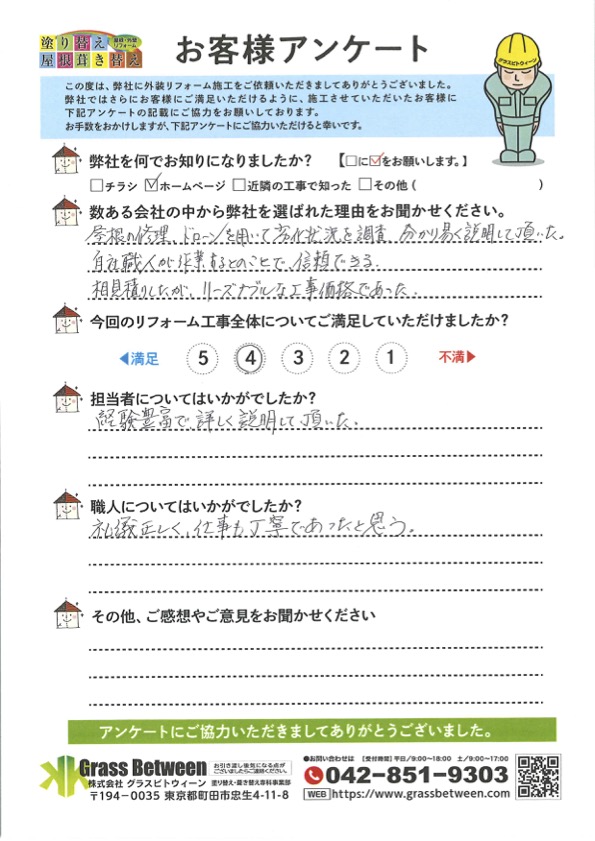 塗り替え 屋根・外壁リフォーム
屋根葺き替え
お客様アンケート
グラスビトウィーン
この度は、弊社に外装リフォーム施工をご依頼いただきましてありがとうございました。
弊社ではさらにお客様にご満足いただけるように、施工させていただいたお客様に
下記アンケートの記載にご協力をお願いしております。
お手数をおかけしますが、下記アンケートにご協力いただけると幸いです。
弊社を何でお知りになりましたか？ 【□に☑をお願いします。】
□チラシ ☑ホームページ □近隣の工事で知った □その他 ( )
数ある会社の中から弊社を選ばれた理由をお聞かせください。
屋根の修理、ドローンを用いて劣化状況を調査、分かり易く説明して頂いた。
自社職人が作業するとのことで、信頼できる。
相見積りしたが、リーズナブルな工事価格であった。
今回のリフォーム工事全体についてご満足していただけましたか？
◀満足 5 4 3 2 1 不満▶
担当者についてはいかがでしたか？
経験豊富で、詳しく説明して頂いた。
職人についてはいかがでしたか？
礼儀正しく、仕事も丁寧であったと思う。
その他、ご感想やご意見をお聞かせください
アンケートにご協力いただきましてありがとうございました。
Grass Between
お引き渡し後気になる点がございましたらご連絡ください。
株式会社 グラスビトウィーン 塗り替え・葺き替え専科事業部
〒194-0035 東京都町田市忠生4-11-8
●お問い合わせは 【受付時間】平日／9:00〜18:00 土／9:00〜17:00
042-851-9303
WEB https://www.grassbetween.com